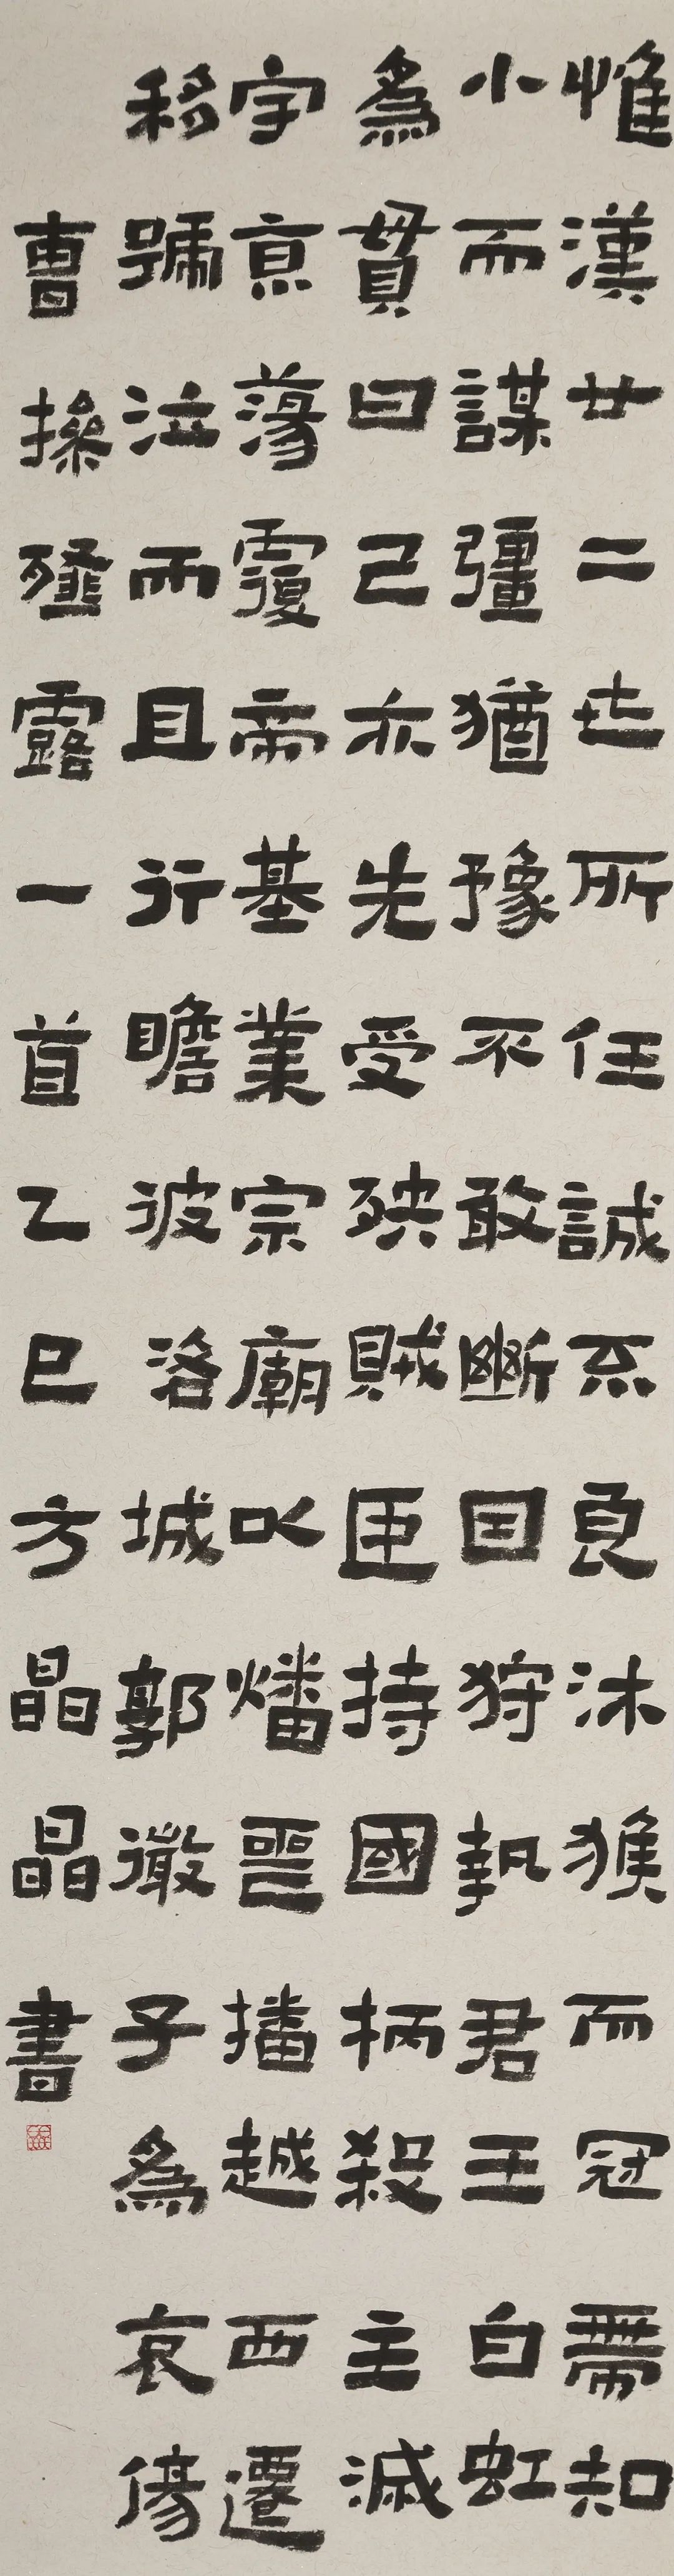 惟漢廿二世所任誠不良沐猴而冠帶知
小而謀彊猶豫不敢斷因狩執君王白虹
爲貫日己亦先受殃賊臣持國柄殺主滅
宇京蕩覆帝基業宗廟以燔喪播越西遷
移號泣而且行瞻彼洛城郭微子爲哀傷
曹操薤露一首乙巳方晶晶書